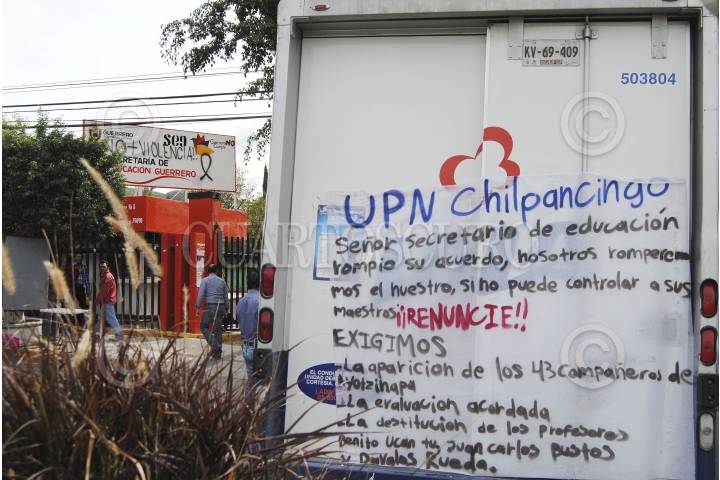 KV-69-409
503804
GUERRERO
seg
NO + VIOLENCIA!!
SECRETARÍA DE
EDUCACIÓN GUERRERO
UPN Chilpancingo
Señor secretario de educación
rompio su acuerdo, nosotros rompere-
mos el nuestro, si no puede controlar a sus
maestros ¡¡RENUNCIE!!
EXIGIMOS
-La aparicion de los 43 compañeros de
Ayotzinapa
-La evaluacion acordada
-La destitución de los profesores
Benito Ucan tu, Juan carlos bustos
y Davalos Rueda.
EL CONDUCTOR
UNIDAD DEBE
CORTESÍA
CUARTOSCURO